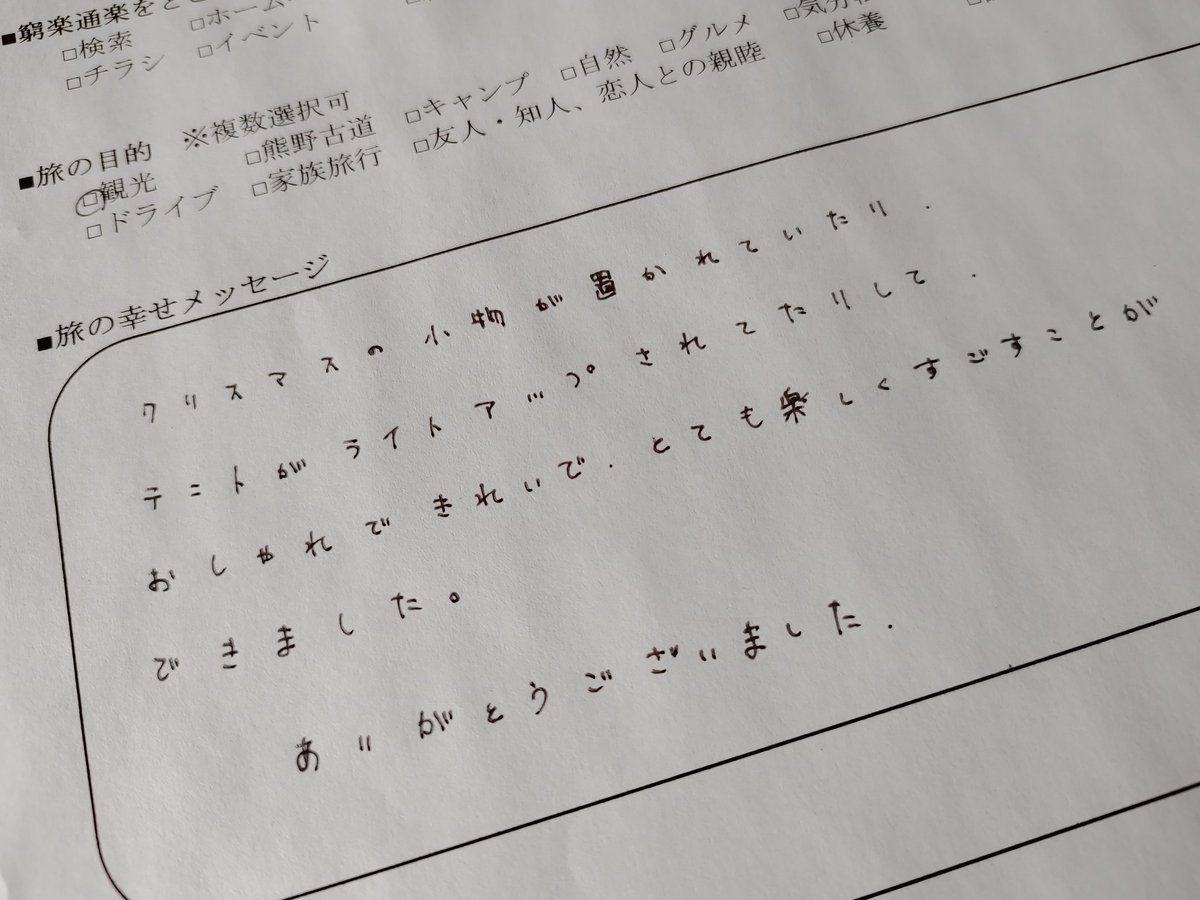 ■窮楽通楽をど
□検索 □ホーム
□チラシ □イベント
■旅の目的 ※複数選択可
□観光 □熊野古道 □キャンプ □自然 □グルメ □気分
□ドライブ □家族旅行 □友人・知人、恋人との親睦 □休養
■旅の幸せメッセージ
クリスマスの小物が置かれていたり.
テントがライトアップされてたりして.
おしゃれできれいで.とても楽しくすごすことが
できました。
ありがとうございました.